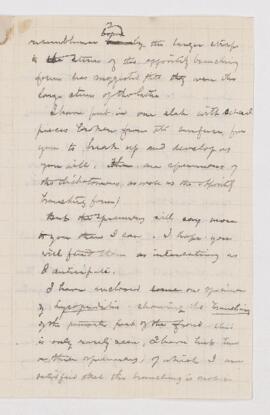 resemblance borne by the larger strap
to the stems of the oppositely branching
forms has suggested that they were the
large stems of the latter
I have put in one slab with several
pieces broken from the surface for
you to break up and develop as
you will. are specimens of
the dichotomous, as well as the oppositely
branching form)
But the specimens will say more
to you than I can. I hope you
will find them as interesting as
I anticipate.
I have enclosed some one specimen
of showing the branching
of the part of the frond. This
is only rarely seen, I have but two
other specimens, of which I am
satisfied that this branching is not